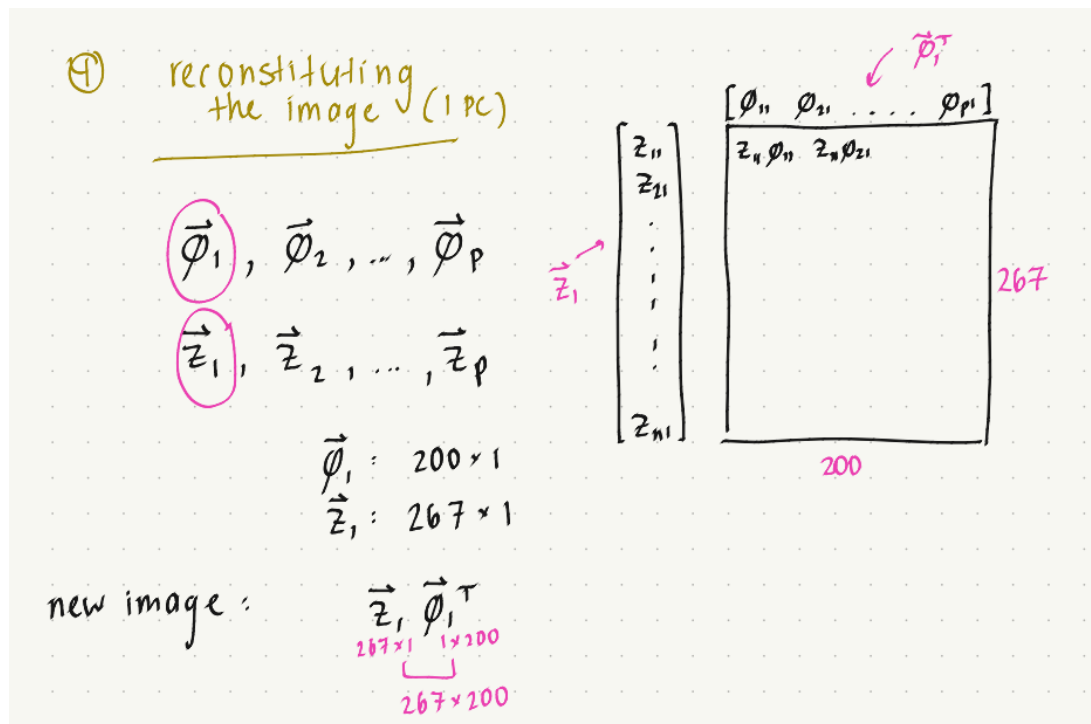 ④ reconstituting
the image (1 PC)
φ⃗₁, φ⃗₂, ..., φ⃗ₚ
z⃗₁, z⃗₂, ..., z⃗ₚ
φ⃗₁ : 200 × 1
z⃗₁ : 267 × 1
new image : z⃗₁ φ⃗₁ᵀ
267 × 1 1 × 200
267 × 200
φ⃗₁ᵀ
[φ₁₁ φ₂₁ .... φₚ₁]
z₁₁
z₂₁
zₙ₁
z⃗₁
z₁₁φ₁₁ z₁₁φ₂₁
267
200